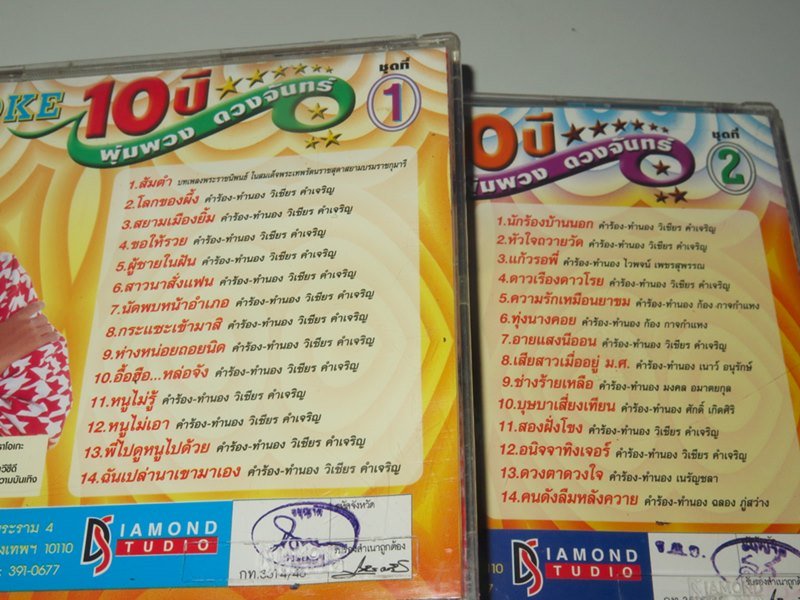 OKE
10ปี
พุ่มพวง ดวงจันทร์
ชุดที่
1
1.ส้มตำ บทเพลงพระราชนิพนธ์ ในสมเด็จพระเทพรัตนราชสุดาสยามบรมราชกุมารี
2.โลกของผึ้ง คำร้อง-ทำนอง วิเชียร คำเจริญ
3.สยามเมืองยิ้ม คำร้อง-ทำนอง วิเชียร คำเจริญ
4.ขอให้รวย คำร้อง-ทำนอง วิเชียร คำเจริญ
5.ผู้ชายในฝัน คำร้อง-ทำนอง วิเชียร คำเจริญ
6.สาวนาสั่งแฟน คำร้อง-ทำนอง วิเชียร คำเจริญ
7.นัดพบหน้าอำเภอ คำร้อง-ทำนอง วิเชียร คำเจริญ
8.กระแซะเข้ามาสิ คำร้อง-ทำนอง วิเชียร คำเจริญ
9.ห่างหน่อยถอยนิด คำร้อง-ทำนอง วิเชียร คำเจริญ
10.อื้อฮือ...หล่อจัง คำร้อง-ทำนอง วิเชียร คำเจริญ
11.หนูไม่รู้ คำร้อง-ทำนอง วิเชียร คำเจริญ
12.หนูไม่เอา คำร้อง-ทำนอง วิเชียร คำเจริญ
13.พี่ไปดูหนูไปด้วย คำร้อง-ทำนอง วิเชียร คำเจริญ
14.ฉันเปล่านาเขามาเอง คำร้อง-ทำนอง วิเชียร คำเจริญ
าโอเกะ
วีซีดี
วามบันเทิง
พระราม 4
งเทพฯ 10110
391-0677
DS
DIAMOND
STUDIO
รับรองสำเนาถูกต้อง
0ปี
พุ่มพวง ดวงจันทร์
ชุดที่
2
1.นักร้องบ้านนอก คำร้อง-ทำนอง วิเชียร คำเจริญ
2.หัวใจถวายวัด คำร้อง-ทำนอง วิเชียร คำเจริญ
3.แก้วรอพี่ คำร้อง-ทำนอง ไวพจน์ เพชรสุพรรณ
4.ดาวเรืองดาวโรย คำร้อง-ทำนอง วิเชียร คำเจริญ
5.ความรักเหมือนยาขม คำร้อง-ทำนอง ก้อง กาจกำแหง
6.ทุ่งนางคอย คำร้อง-ทำนอง ก้อง กาจกำแหง
7.อายแสงนีออน คำร้อง-ทำนอง วิเชียร คำเจริญ
8.เสียสาวเมื่ออยู่ ม.ศ. คำร้อง-ทำนอง เนาว์ อนุรักษ์
9.ช่างร้ายเหลือ คำร้อง-ทำนอง มงคล อมาตยกุล
10.บุษบาเสี่ยงเทียน คำร้อง-ทำนอง ศักดิ์ เกิดศิริ
11.สองฝั่งโขง คำร้อง-ทำนอง วิเชียร คำเจริญ
12.อนิจจาทิงเจอร์ คำร้อง-ทำนอง วิเชียร คำเจริญ
13.ดวงตาดวงใจ คำร้อง-ทำนอง เนรัญชลา
14.คนดังลืมหลังควาย คำร้อง-ทำนอง ฉลอง ภู่สว่าง
110
DS
DIAMOND
STUDIO